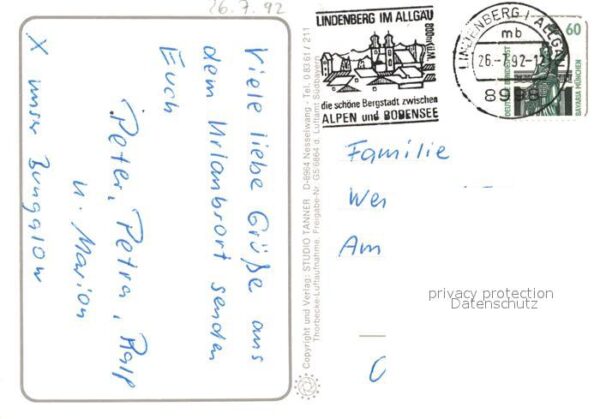 26.7.92
Viele liebe Grüße aus
dem Urlaubsort senden
Euch
Peter, Petra, Ralf
u. Marion
X unser Bungalow
Copyright und Verlag: STUDIO TANNER · D-8964 Nesselwang - Tel. 0 83 61 / 211
Thorbecke-Luftaufnahme, Freigabe-Nr. GS 6864 d. Luftamt Südbayern
LINDENBERG IM ALLGÄU
800m ü.M.
die schöne Bergstadt zwischen
ALPEN und BODENSEE
LINDENBERG i. ALLGÄU
mb
26.-7.92-12
8998
60
DEUTSCHE BUNDESPOST
BAVARIA MÜNCHEN
Familie
Wer
Am
privacy protection
Datenschutz